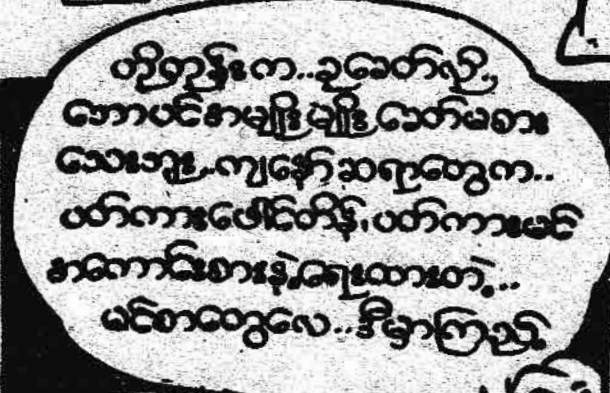 တို့တုန်းက..ခုခေတ်လို..
ဘောပင်အမျိုးမျိုး ခေတ်မစား
သေးဘူး..ကျနော့်ဆရာတွေက..
ပတ်ကားဖေါင်တိန်၊ပတ်ကားမင်
အကောင်းစားနဲ့ရေးထားတဲ့..
မင်စာတွေလေ..ဒီမှာကြည့်